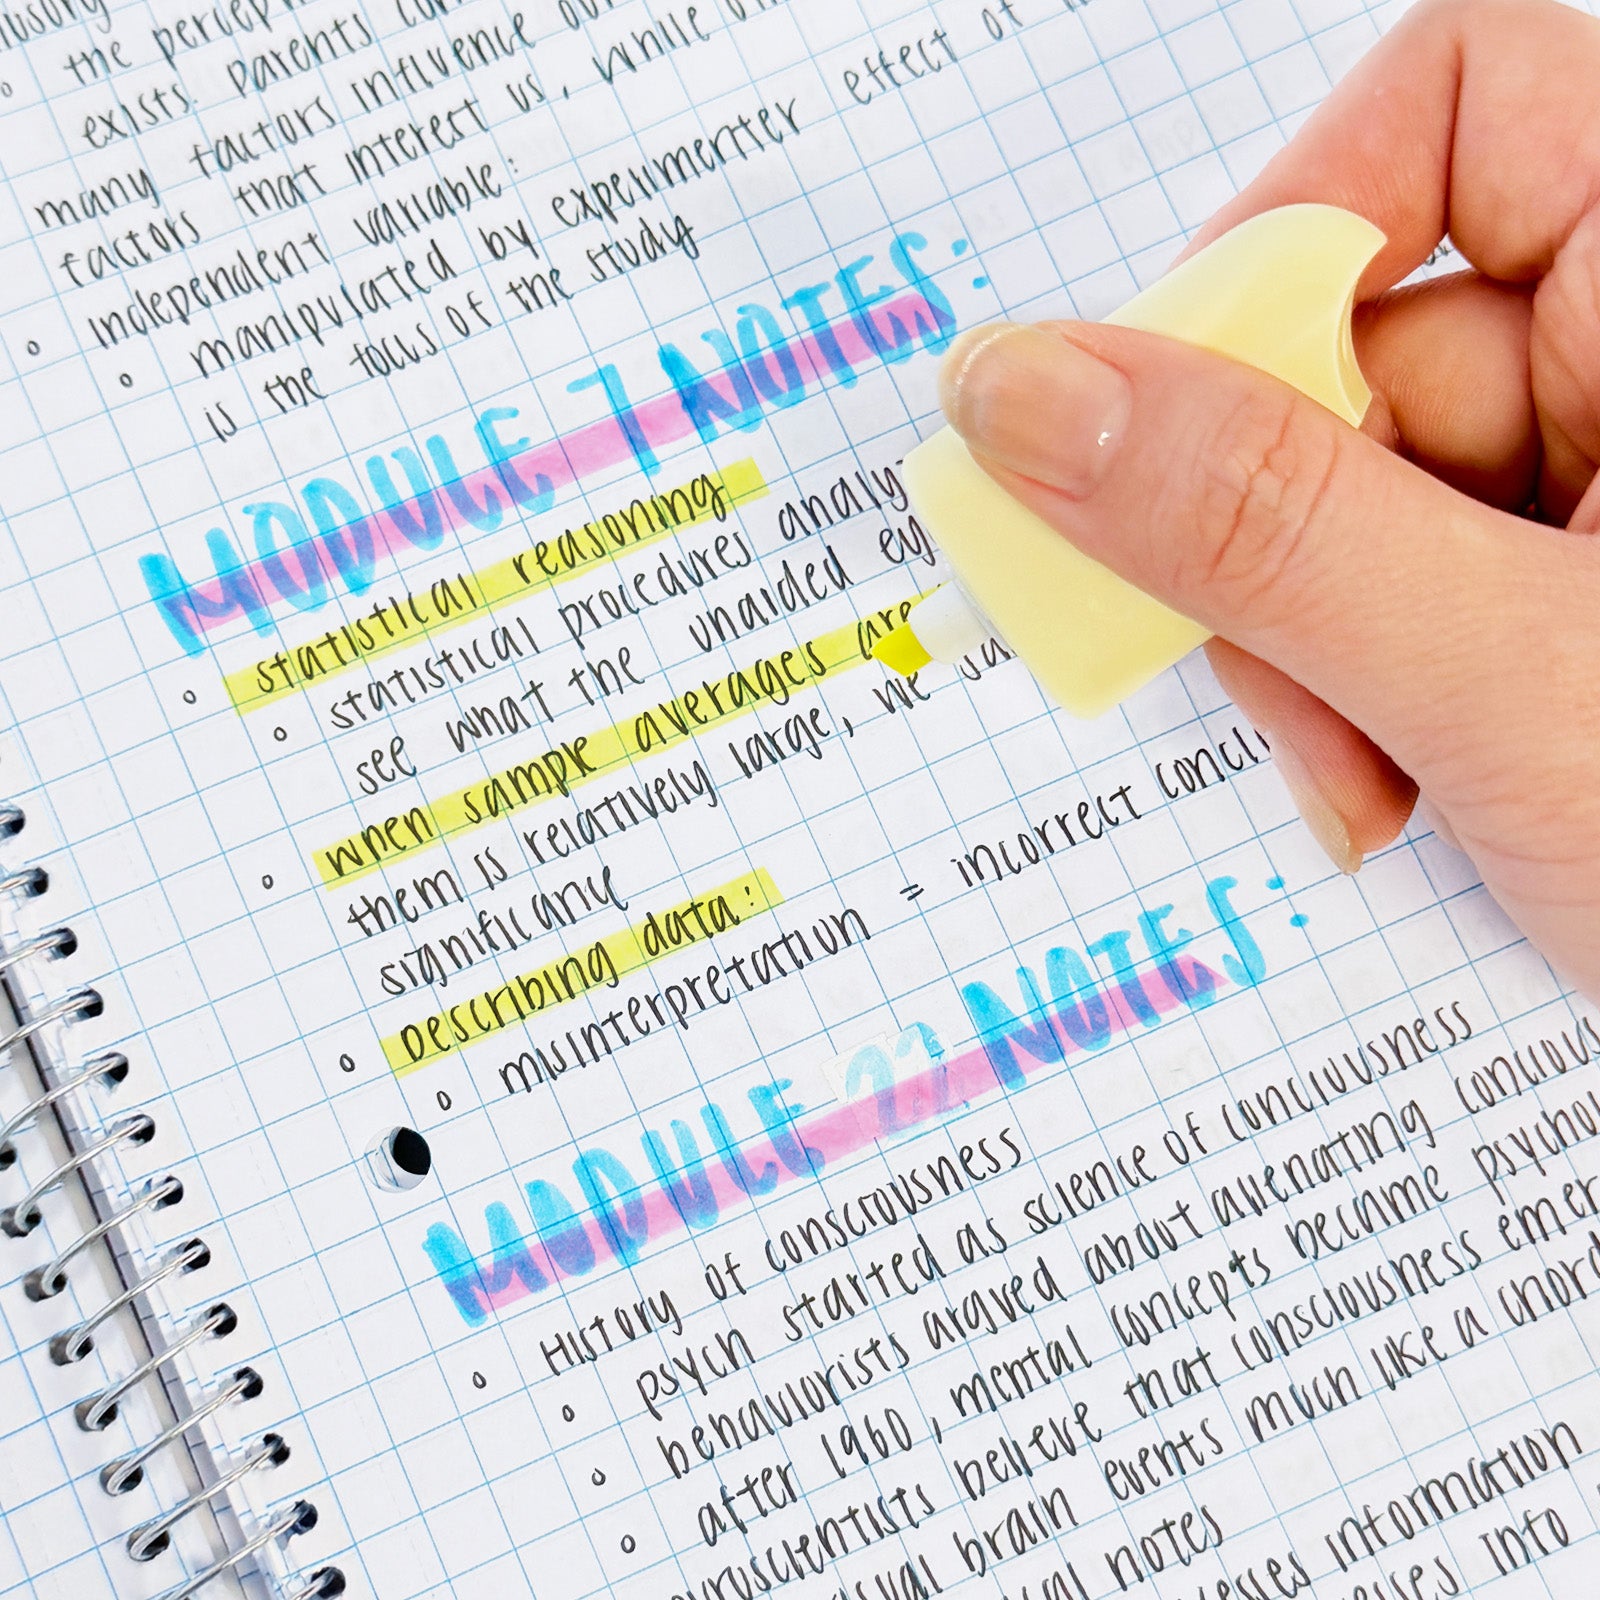 the percep
exists. parents
many factors influence
factors that interest us, while
independent variable: effect of
manipulated by experimentter
is the focus of the study
MODULE 7 NOTES:
statistical reasoning
statistical procedures analy
see what the unaided ey
when sample averages are
them is relatively large, we
significance
Describing data:
misinterpretation = incorrect concl
MODULE 22 NOTES:
History of consciousness
psych started as science of conciousness
behaviorists argued about alienating conciou
after 1960, mental concepts became psycho
scientists believe that consciousness emer
brain events much like a chord
notes
information
into